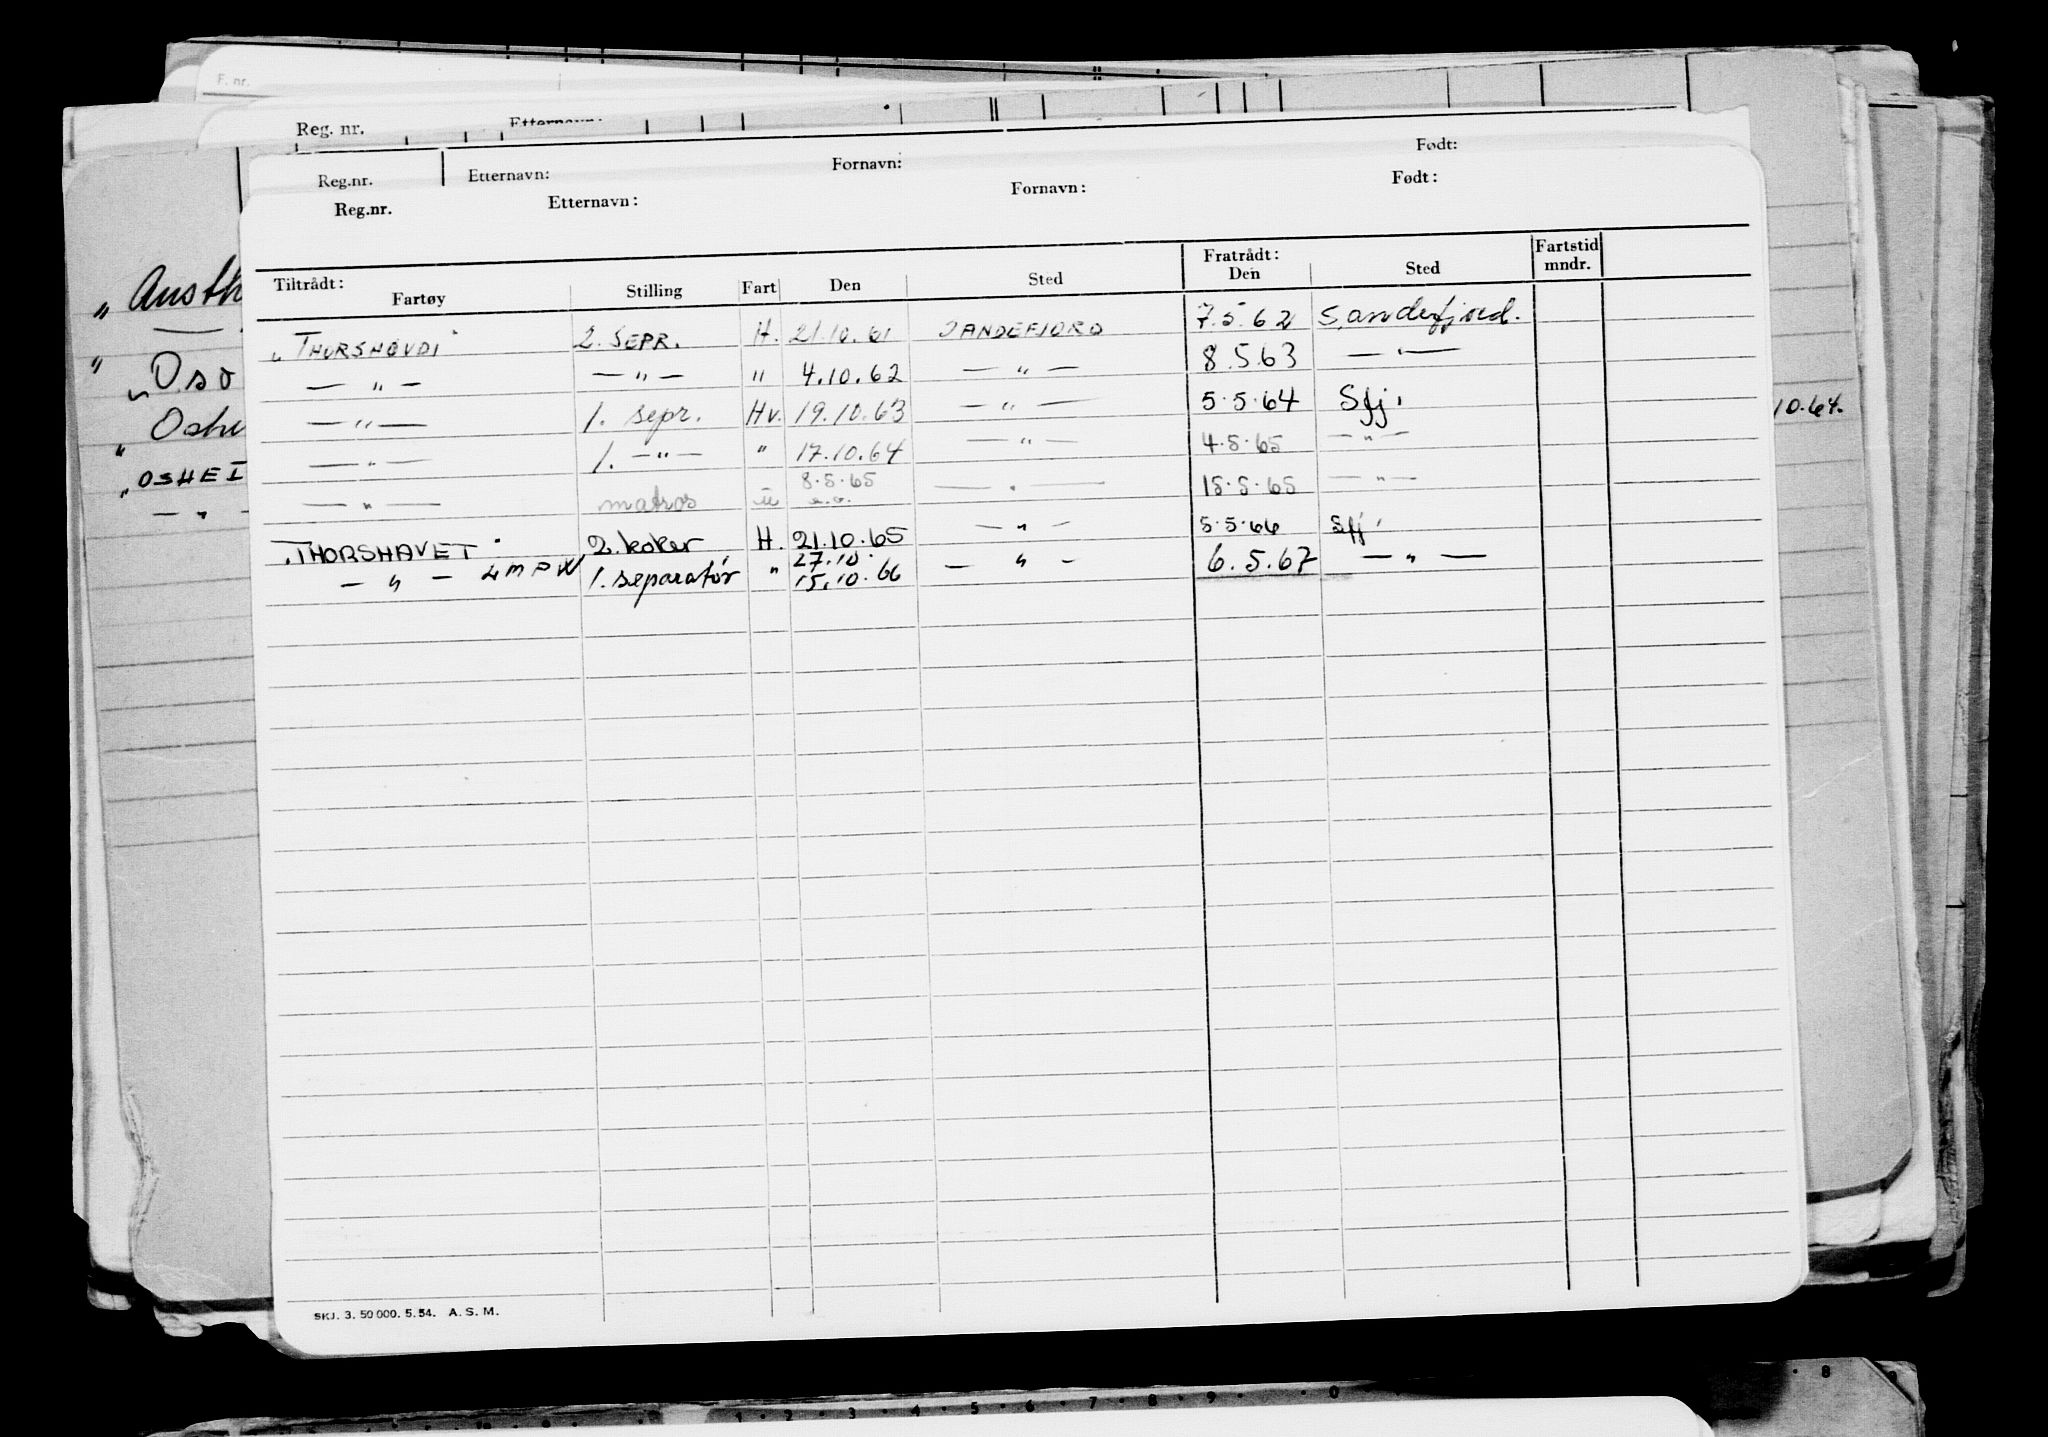 F. nr.
Reg. nr. Etternavn:
Reg.nr. Etternavn: Fornavn: Født:
Reg.nr. Etternavn: Fornavn: Født:
Tiltrådt: Fratrådt: Fartstid
Fartøy Stilling Fart Den Sted Den Sted mndr.
"THORSHØVDI" 2. SEPR. H. 21.10.61 SANDEFJORD 7.5.62 Sandefjord.
— " — — " — " 4.10.62 — " — 8.5.63 — " —
— " — 1. sepr. Hv. 19.10.63 — " — 5.5.64 Sfj.
— " — 1. — " — " 17.10.64 — " — 4.5.65 — " —
— " — matros u 8.5.65 — " — 15.5.65 — " —
"THORSHAVET" 2. koker H. 21.10.65 — " — 5.5.66 Sfj.
27.10.
— " — LMPW 1. separatør " 15.10.66 — " — 6.5.67 — " —
SKJ. 3. 50 000. 5.54. A. S. M.
" Austh
" Oso
" Oshe
" OSHEI
— " —
10.64.
1 · 2 · 3 · 4 · 5 · 6 · 7 · 8 · 9 · 0 · 8